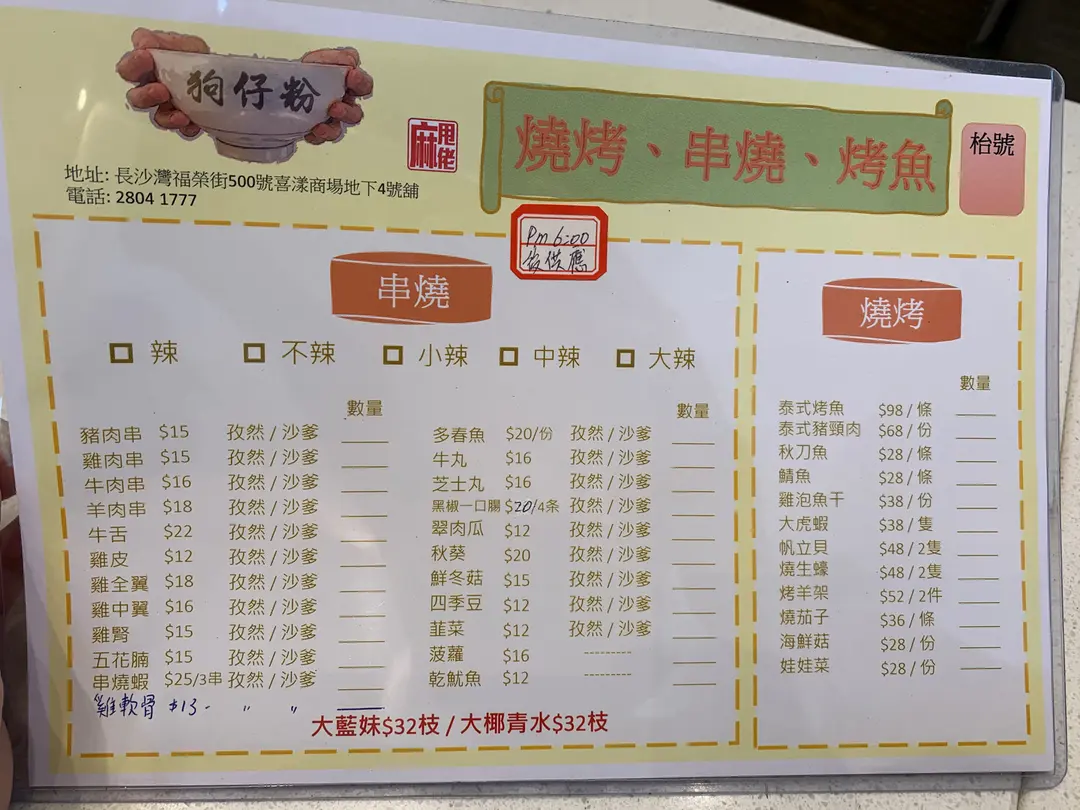 狗仔粉
麻甩佬
地址: 長沙灣福榮街500號喜漾商場地下4號舖
電話: 2804 1777
燒烤、串燒、烤魚
枱號
Pm 6:00
後供應
串燒
辣 不辣 小辣 中辣 大辣
數量
豬肉串 $15 孜然 / 沙爹
雞肉串 $15 孜然 / 沙爹
牛肉串 $16 孜然 / 沙爹
羊肉串 $18 孜然 / 沙爹
牛舌 $22 孜然 / 沙爹
雞皮 $12 孜然 / 沙爹
雞全翼 $18 孜然 / 沙爹
雞中翼 $16 孜然 / 沙爹
雞腎 $15 孜然 / 沙爹
五花腩 $15 孜然 / 沙爹
串燒蝦 $25/3串 孜然 / 沙爹
雞軟骨 $13- " "
數量
多春魚 $20/份 孜然 / 沙爹
牛丸 $16 孜然 / 沙爹
芝士丸 $16 孜然 / 沙爹
黑椒一口腸 $20/4条 孜然 / 沙爹
翠肉瓜 $12 孜然 / 沙爹
秋葵 $20 孜然 / 沙爹
鮮冬菇 $15 孜然 / 沙爹
四季豆 $12 孜然 / 沙爹
韮菜 $12 孜然 / 沙爹
菠蘿 $16 ---------
乾魷魚 $12 ---------
大藍妹$32枝 / 大椰青水$32枝
燒烤
數量
泰式烤魚 $98 / 條
泰式豬頸肉 $68 / 份
秋刀魚 $28 / 條
鯖魚 $28 / 條
雞泡魚干 $38 / 份
大虎蝦 $38 / 隻
帆立貝 $48 / 2隻
燒生蠔 $48 / 2隻
烤羊架 $52 / 2件
燒茄子 $36 / 條
海鮮菇 $28 / 份
娃娃菜 $28 / 份